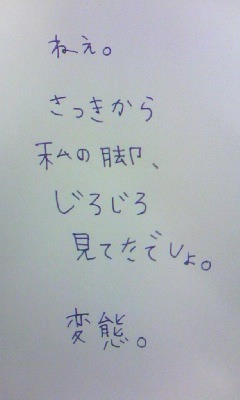 ねえ。
さっきから
私の脚、
じろじろ
見てたでしょ。
変態。